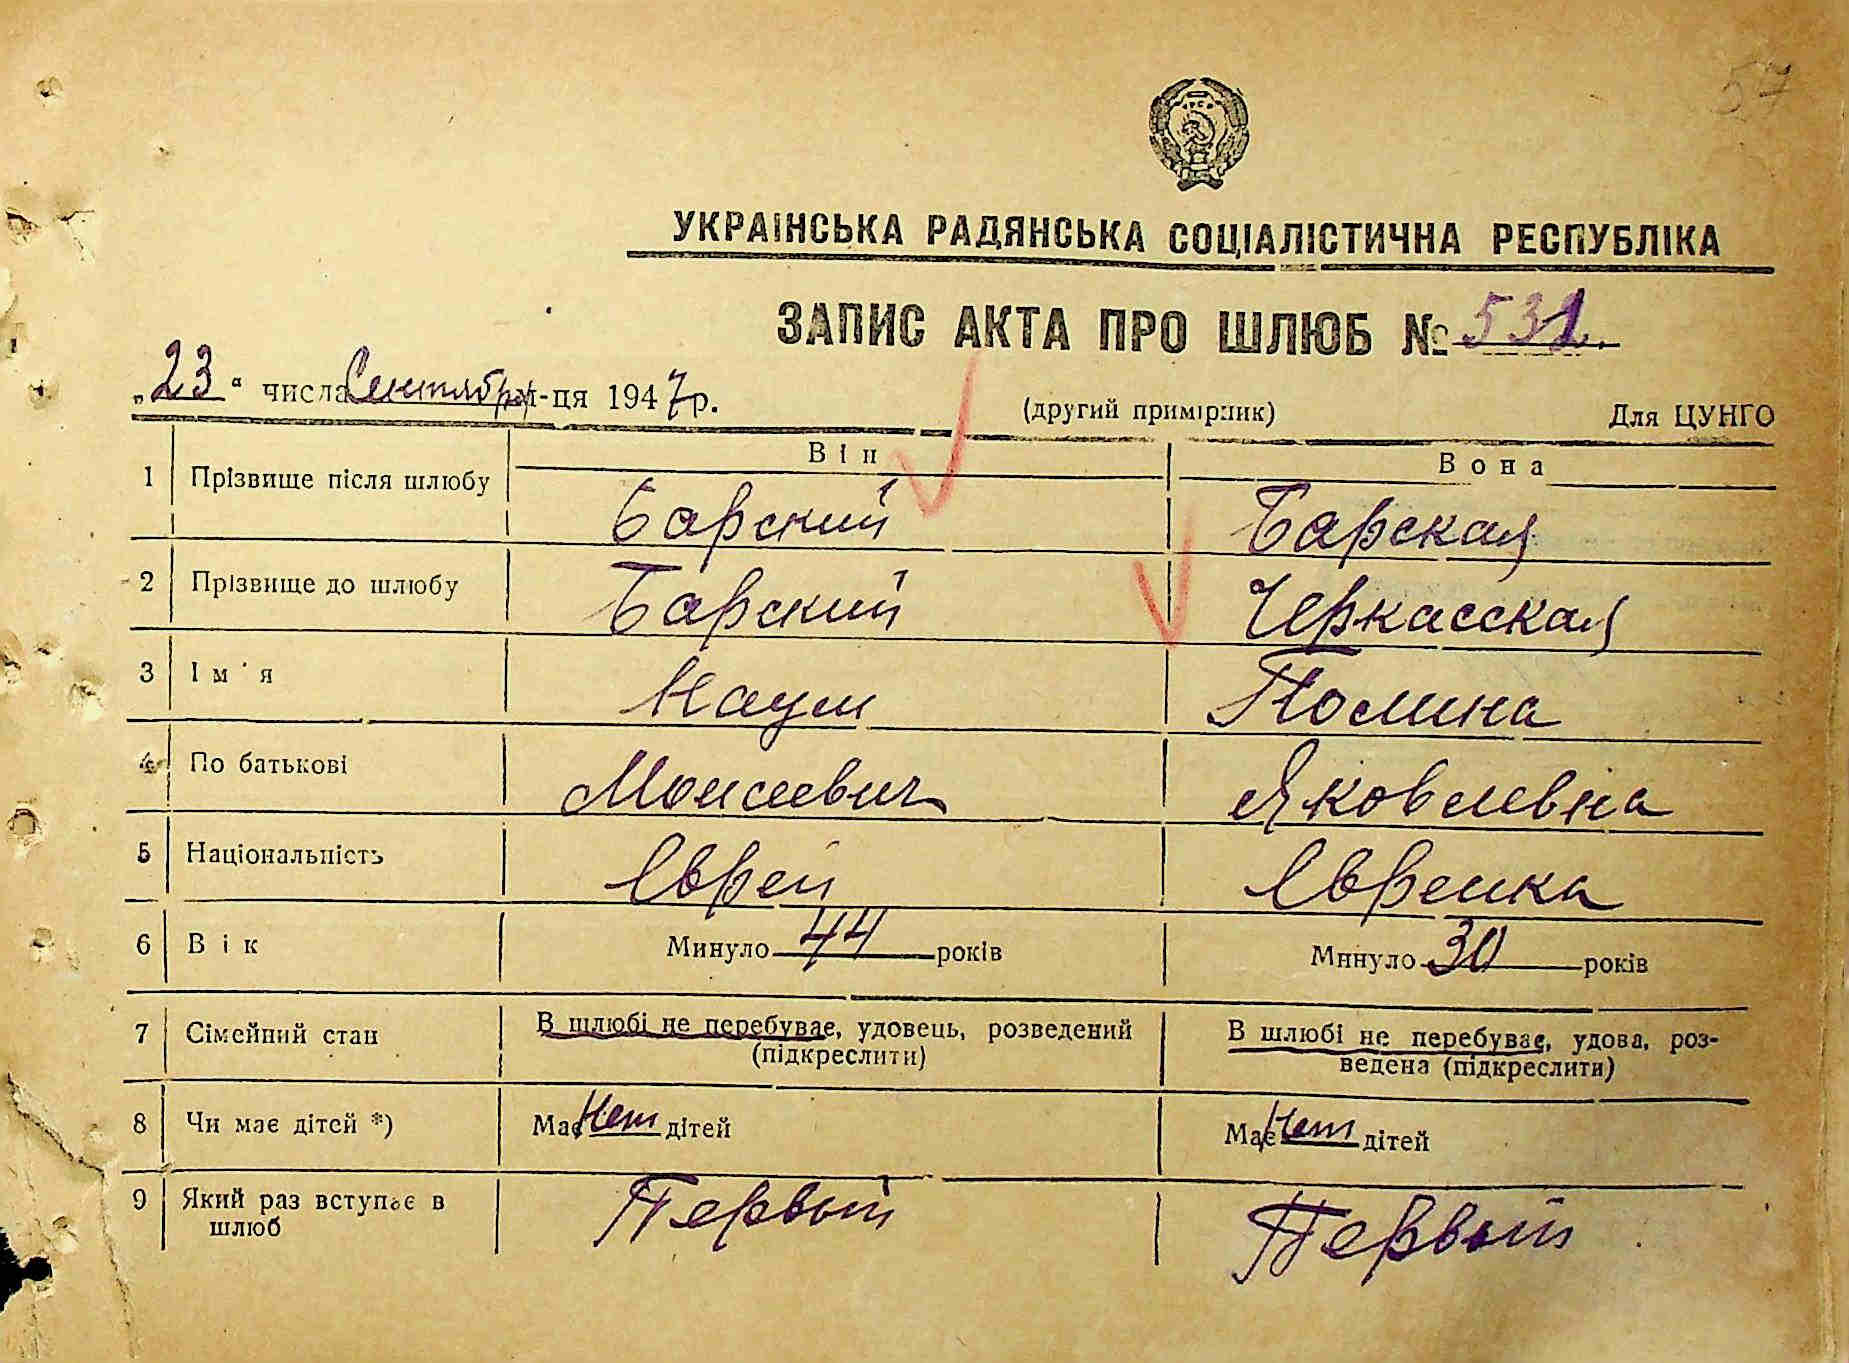 57
УКРАЇНСЬКА РАДЯНСЬКА СОЦІАЛІСТИЧНА РЕСПУБЛІКА
ЗАПИС АКТА ПРО ШЛЮБ № 531.
„23“ числа Сентября м-ця 1947 р.
(другий примірник) Для ЦУНГО
Він Вона
1 Прізвище після шлюбу Барский Барская
2 Прізвище до шлюбу Барский Черкасская
3 Ім'я Наум Полина
4 По батькові Моисеевич Яковлевна
5 Національність Еврей Еврейка
6 Вік Минуло 44 років Минуло 30 років
7 Сімейний стан В шлюбі не перебуває, удовець, розведений (підкреслити) В шлюбі не перебуває, удова, роз-
ведена (підкреслити)
8 Чи має дітей *) Має Нет дітей Має Нет дітей
9 Який раз вступає в шлюб Первый Первый